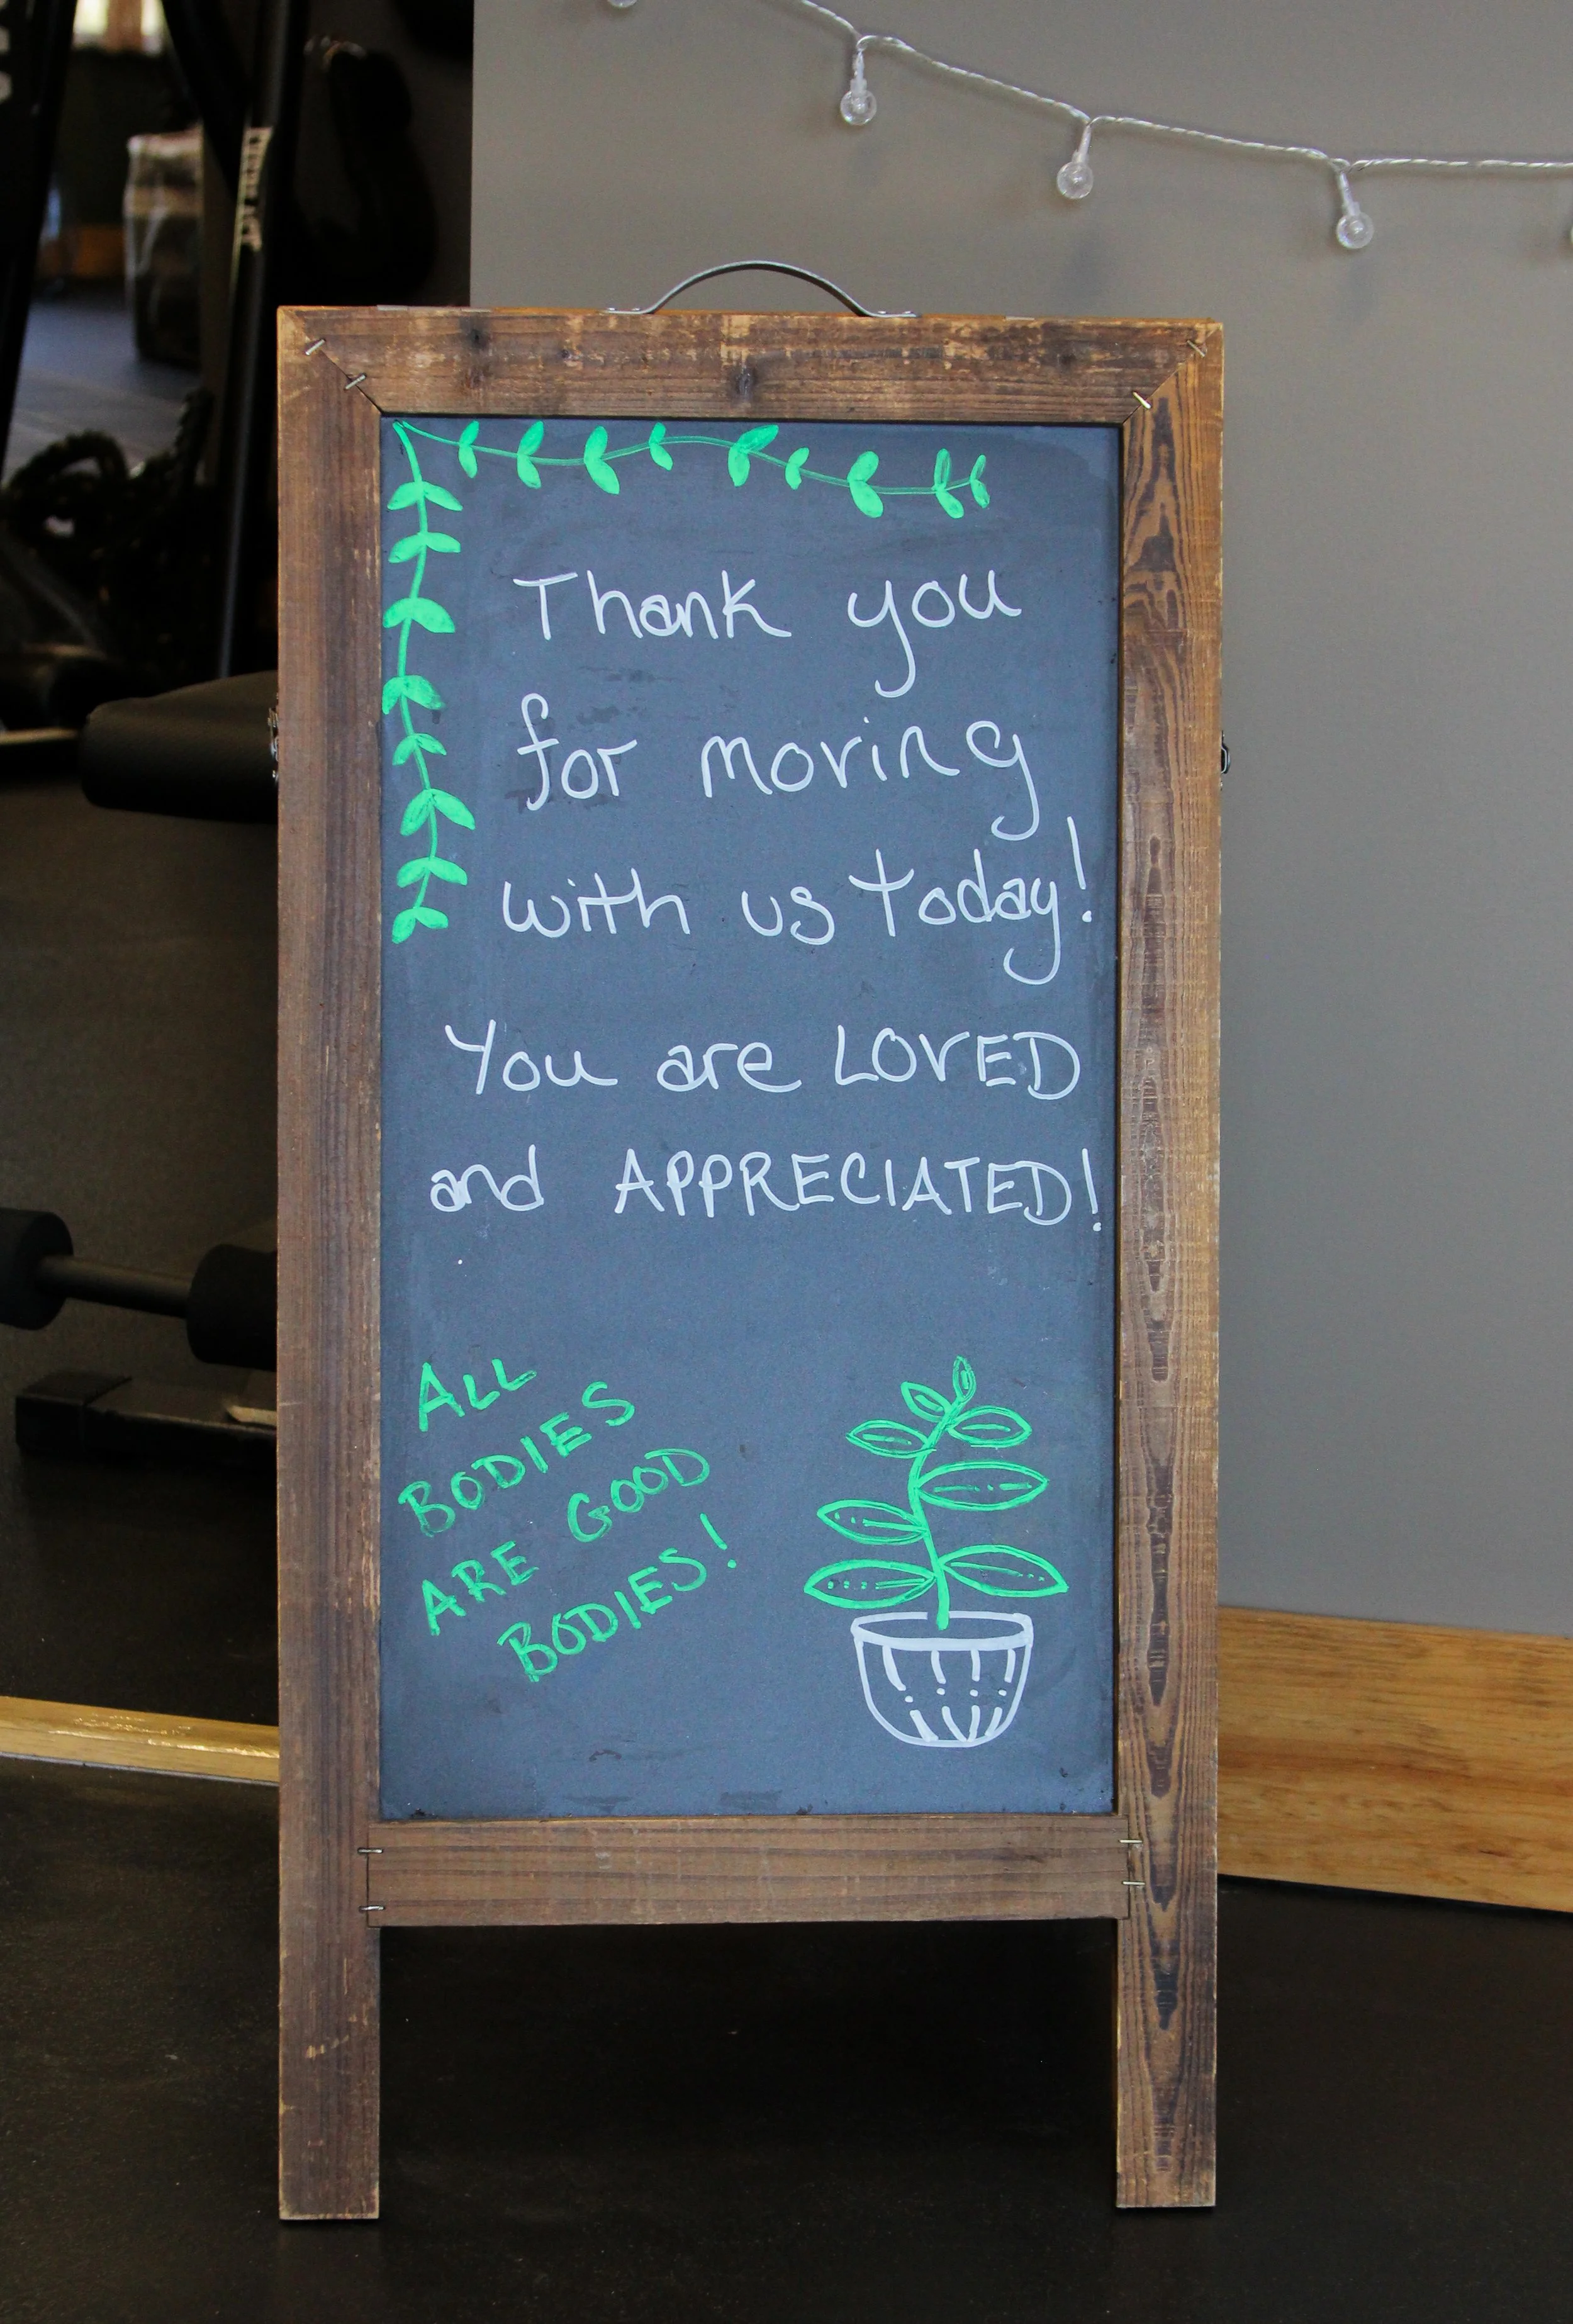 Thank you
for moving
with us today!
You are LOVED
and APPRECIATED!
ALL
BODIES
ARE GOOD
BODIES!